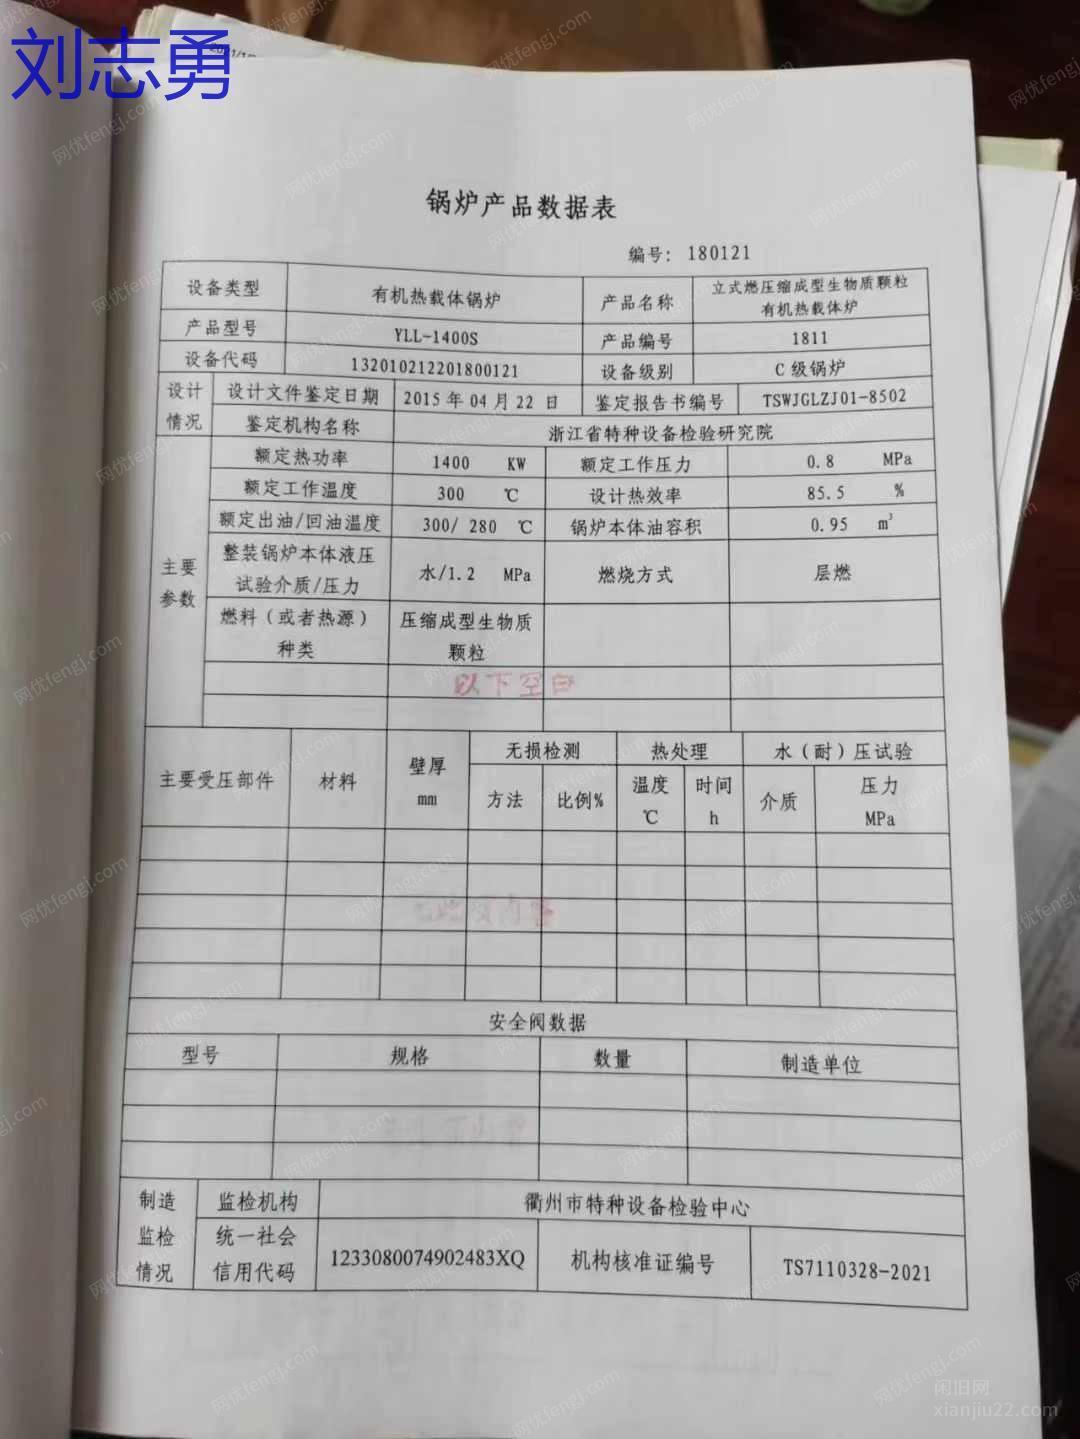 刘志勇
锅炉产品数据表
编号: 180121
设备类型 有机热载体锅炉 产品名称 立式燃压缩成型生物质颗粒
有机热载体炉
产品型号 YLL-1400S 产品编号 1811
设备代码 132010212201800121 设备级别 C 级锅炉
设计
情况
设计文件鉴定日期 2015 年 04 月 22 日 鉴定报告书编号 TSWJGLZJ01-8502
鉴定机构名称 浙江省特种设备检验研究院
主要
参数
额定热功率 1400 KW 额定工作压力 0.8 MPa
额定工作温度 300 ℃ 设计热效率 85.5 %
额定出油/回油温度 300/ 280 ℃ 锅炉本体油容积 0.95 m³
整装锅炉本体液压
试验介质/压力
水/1.2 MPa 燃烧方式 层燃
燃料（或者热源）
种类
压缩成型生物质
颗粒
以下空白
主要受压部件 材料 壁厚
mm
无损检测 热处理 水（耐）压试验
方法 比例% 温度
℃
时间
h
介质 压力
MPa
安全阀数据
型号 规格 数量 制造单位
制造
监检
情况
监检机构 衢州市特种设备检验中心
统一社会
信用代码
1233080074902483XQ 机构核准证编号 TS7110328-2021
闲旧网
xianjiu22.com
网优fengj.com